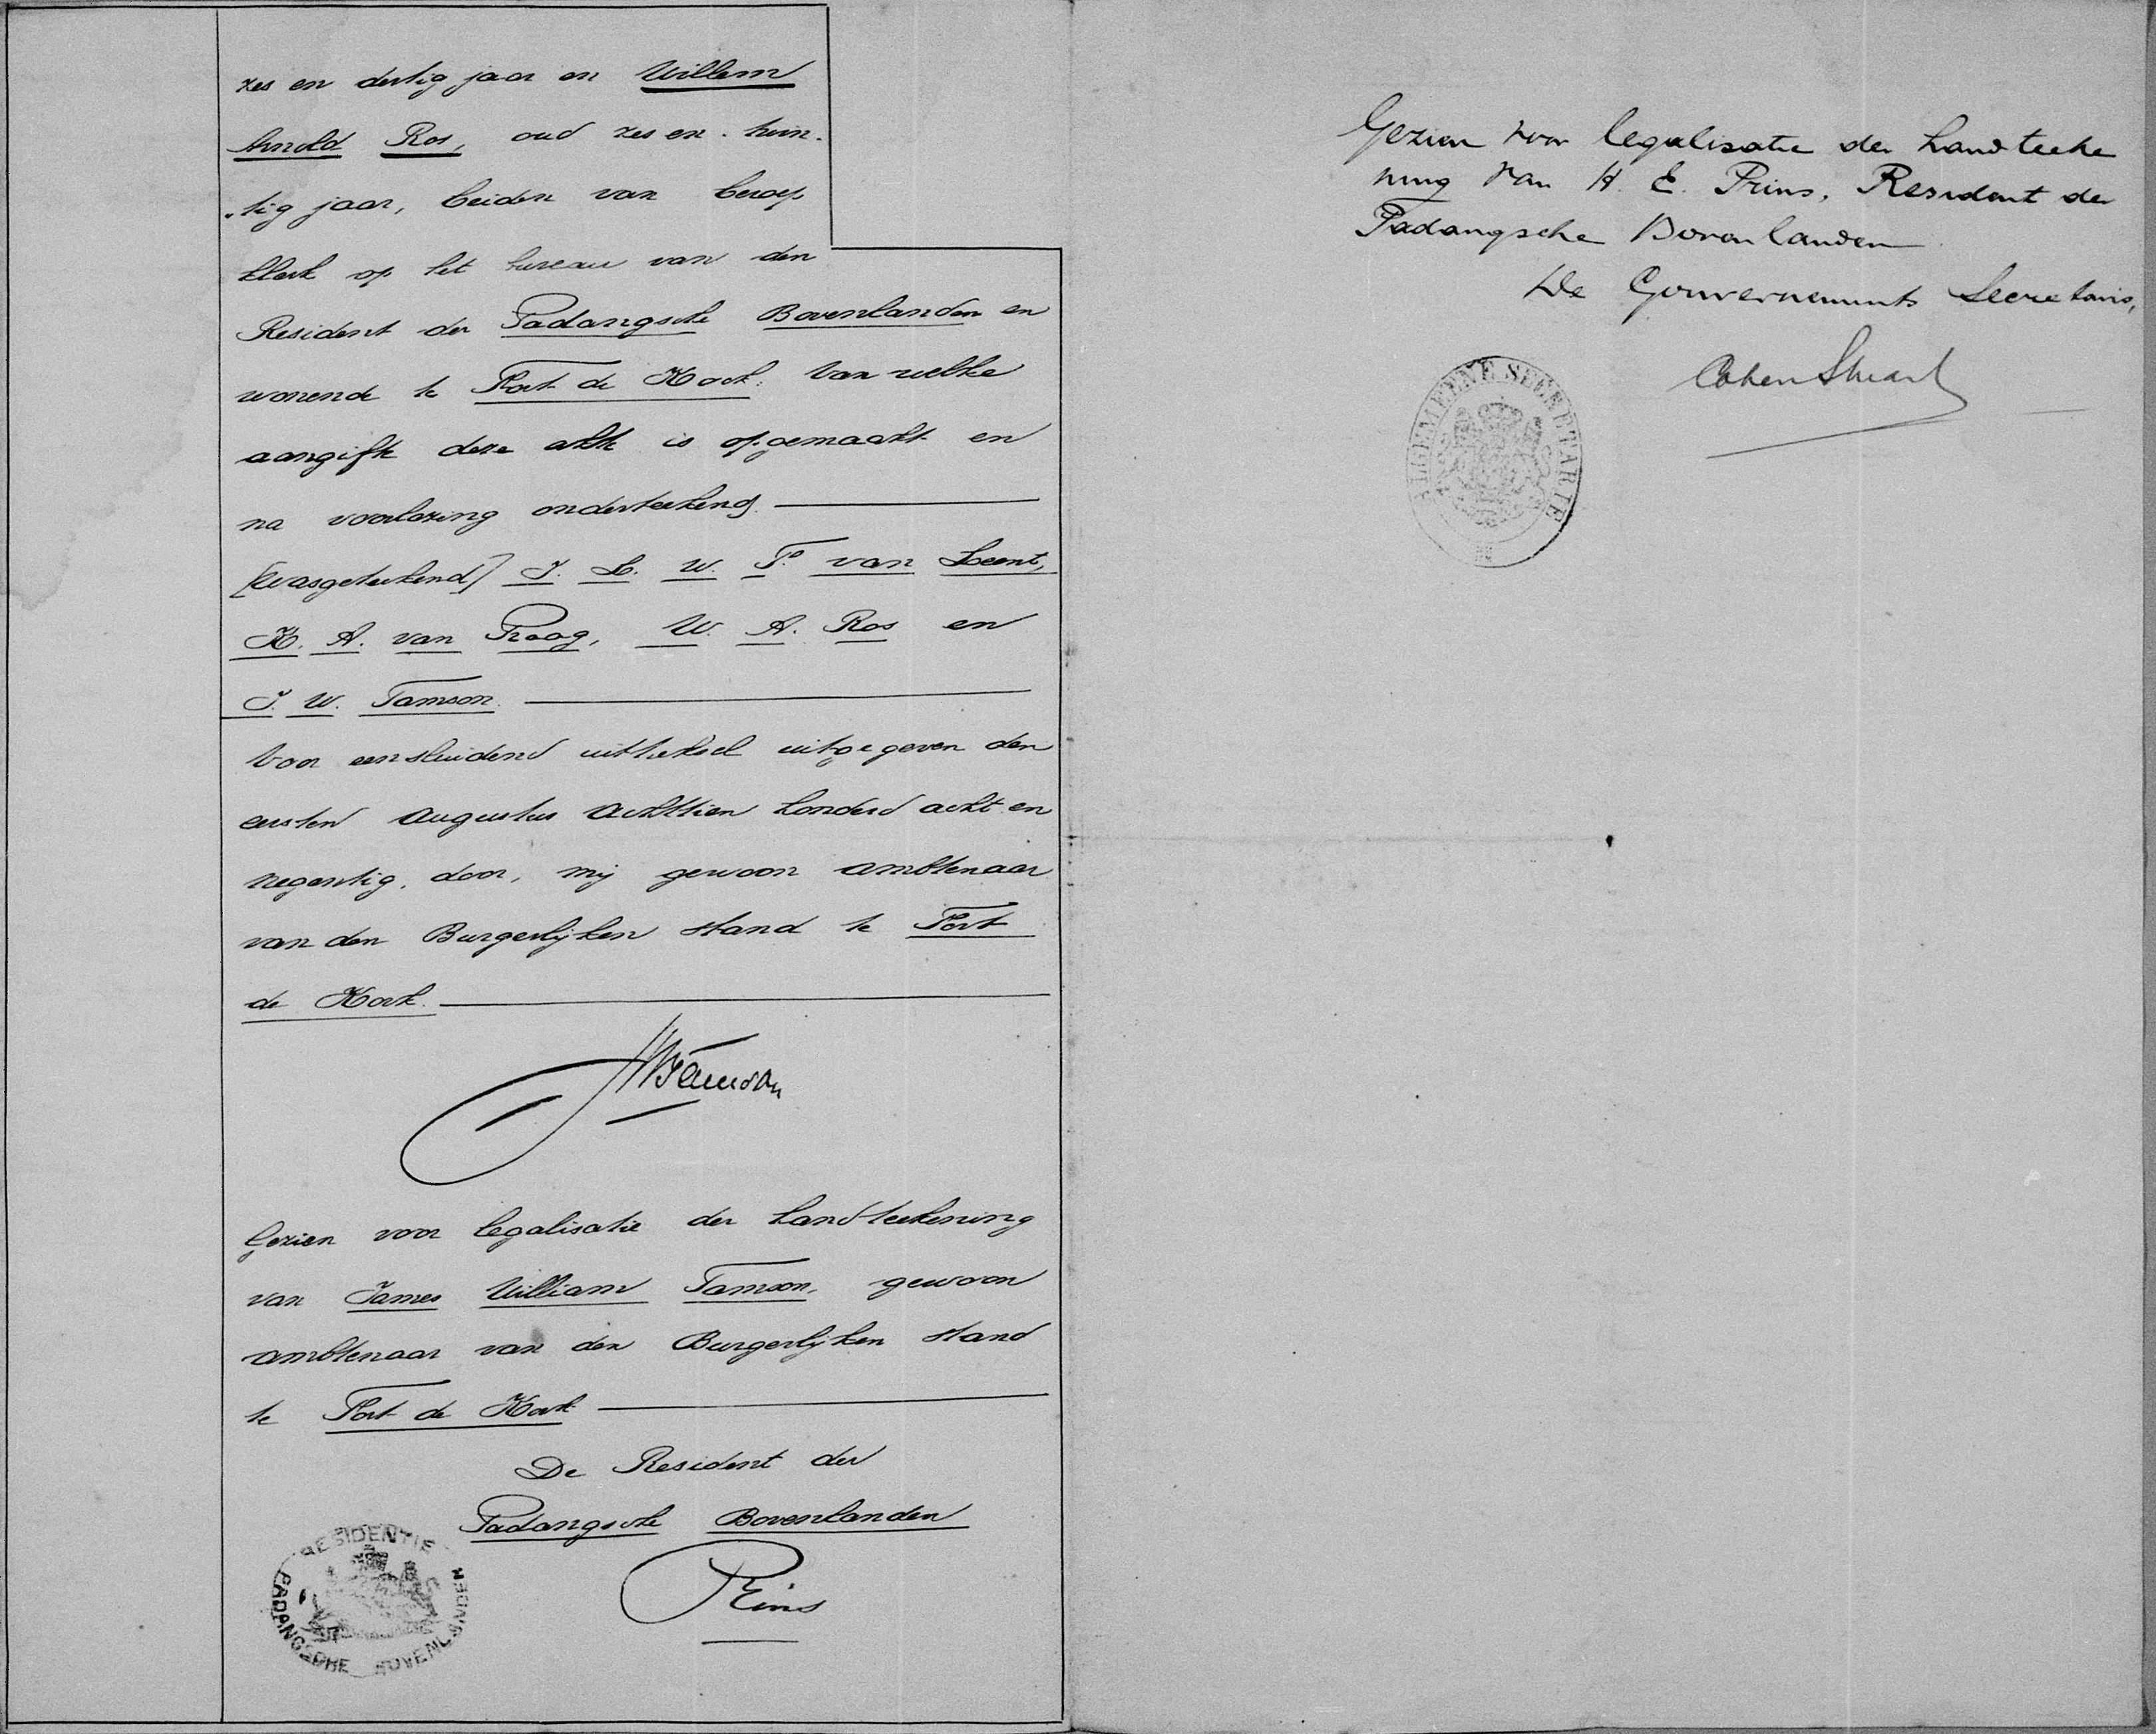 zes en dertig jaar en Willem
Arnold Ros, oud zes en twin-
"tig jaar, beiden van beroep
klerk op het bureau van den
Resident der Padangsche Bovenlanden en
wonende te Fort de Kock. Van welke
aangifte deze akte is opgemaakt en
na voorlezing onderteekend.
[wasgeteekend] J. L. W. F. van Leent,
K. A. van Praag, W. A. Ros en
J. W. Tamson.
Voor eensluidend uittreksel uitgegeven den
eersten Augustus achttien honderd acht en
negentig, door, mij gewoon ambtenaar
van den Burgerlijken stand te Fort
de Kock.
JWTamson
Gezien voor legalisatie der handteekening
van James William Tamson, gewoon
ambtenaar van den Burgerlijken stand
te Fort de Kock
De Resident der
Padangsche Bovenlanden
Prins
RESIDENTIE
PADANGSCHE BOVENLANDEN
Gezien voor legalisatie der handteeke
ning van H. E. Prins, Resident der
Padangsche Bovenlanden
De Gouvernements Secretaris,
Cohen Stuart
ALGEMEENE SECRETARIE